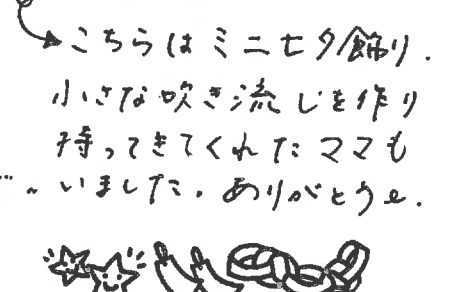 こちらはミニ七夕飾り.
小さな吹き流しを作り
持ってきてくれたママも
いました. ありがとう